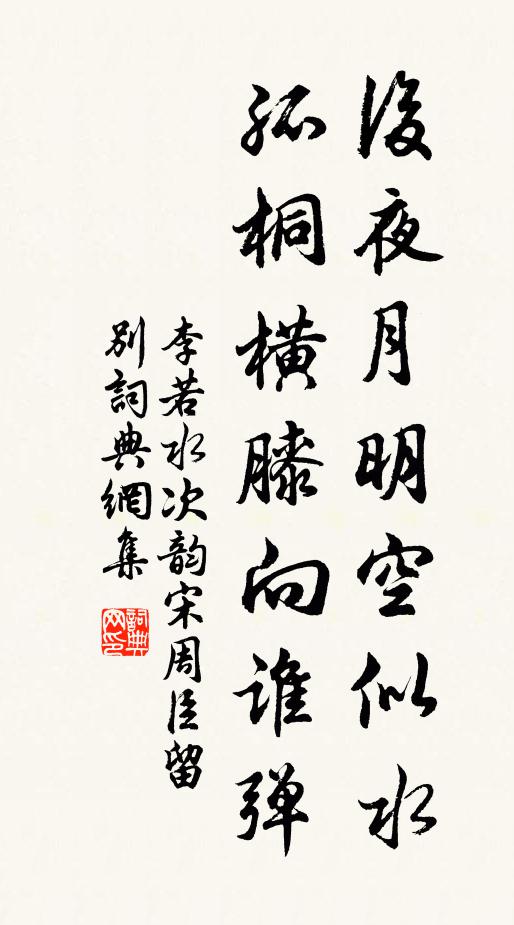 後夜月明空似水
孤桐横膝向谁弹
李若水次韵宋周臣留
别词典網集
詞典
网印